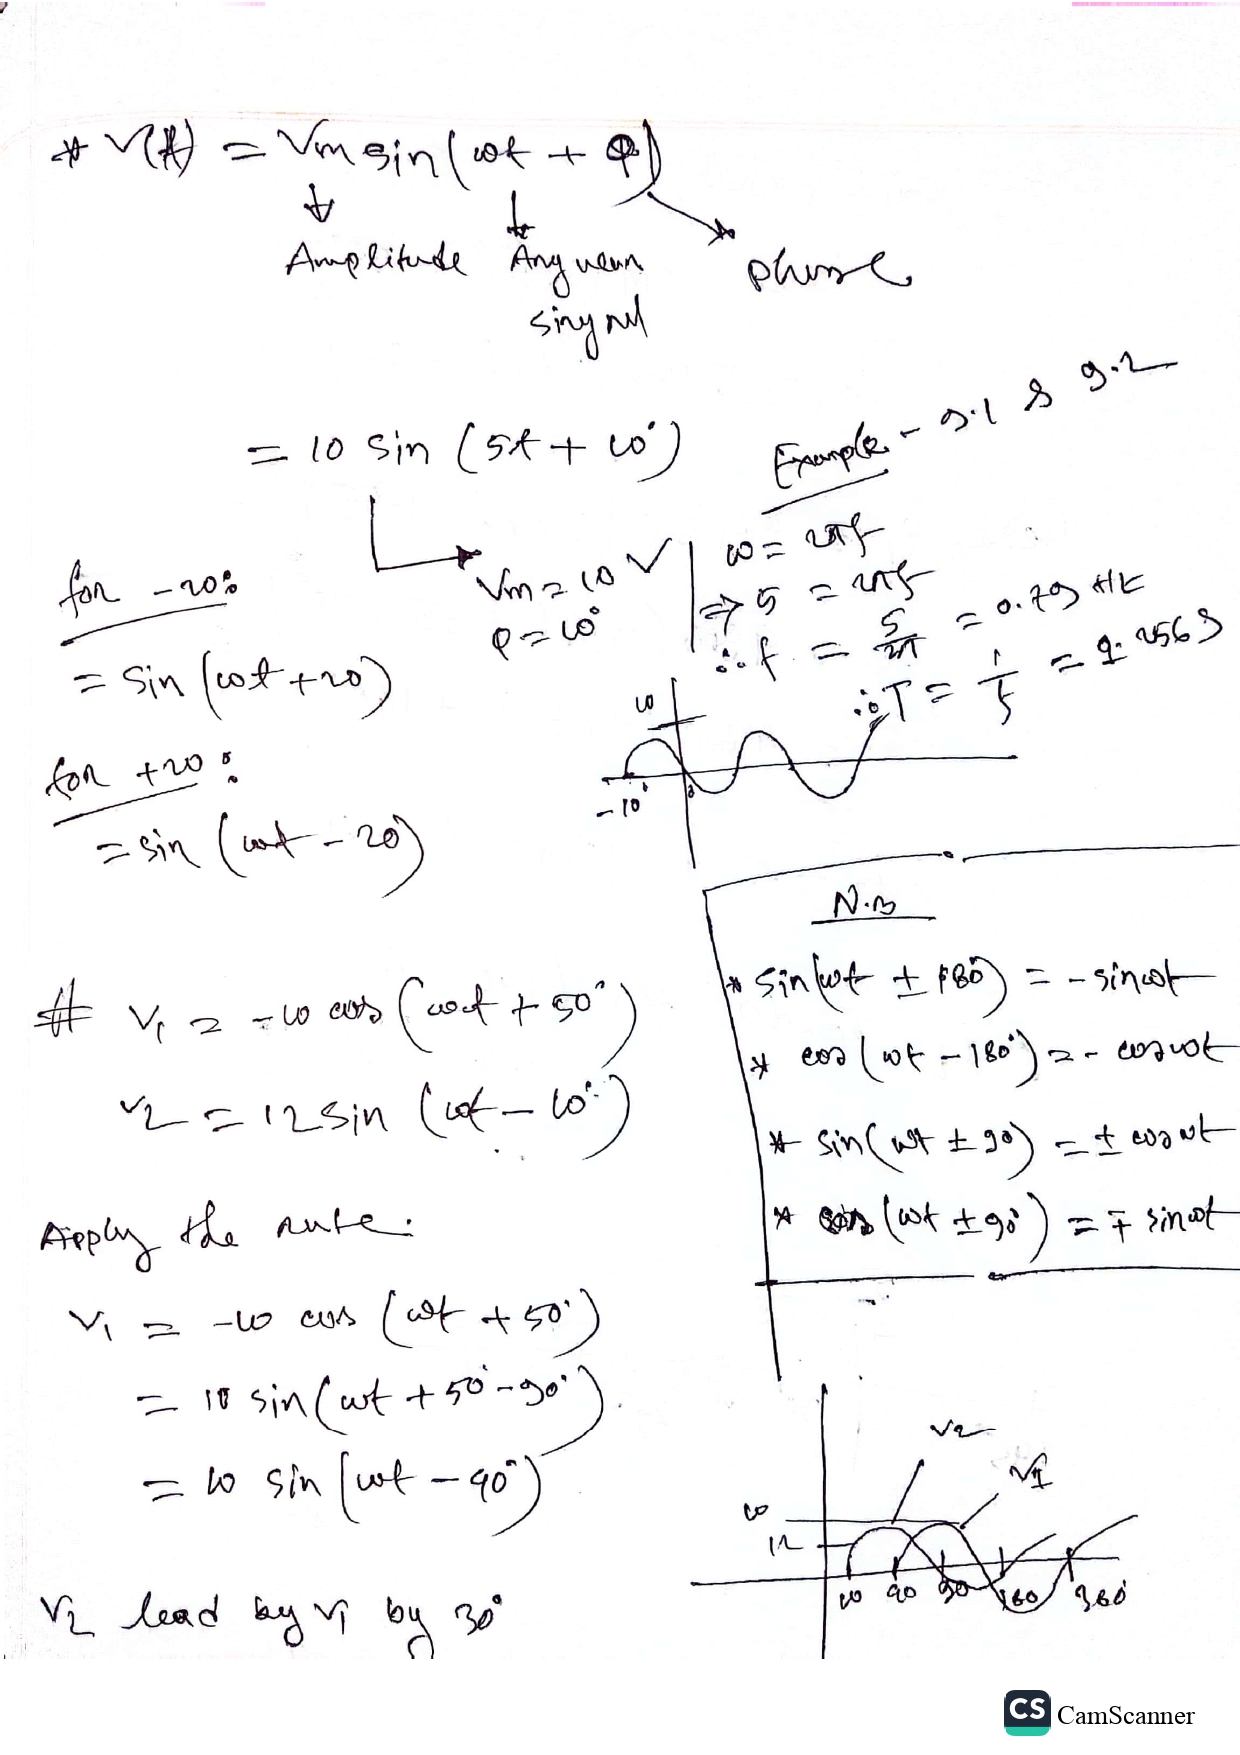 # V(t) = Vm sin(ωt + φ)
Amplitude
phase
= 10 sin (5t + 10°)
Example - 9.1 & 9.2
Vm = 10 V
φ = 10°
ω = 2πf
⇒ 5 = 2πf
∴ f = 5/2π = 0.79 Hz
∴ T = 1/f = 1.256 s
for -20:
= sin (ωt + 20)
for +20:
= sin (ωt - 20)
10
-10°
N.B
* sin(ωt ± 180°) = - sin ωt
* cos(ωt - 180°) = - cos ωt
* sin(ωt ± 90) = ± cos ωt
* cos(ωt ± 90°) = ∓ sin ωt
# V1 = -10 cos (ωt + 50°)
V2 = 12 sin (ωt - 10°)
Apply the rule:
V1 = -10 cos (ωt + 50°)
= 10 sin(ωt + 50° - 90°)
= 10 sin(ωt - 40°)
V2
V1
10
12
10 40 90 180 360°
V2 lead by V1 by 30°
CS CamScanner